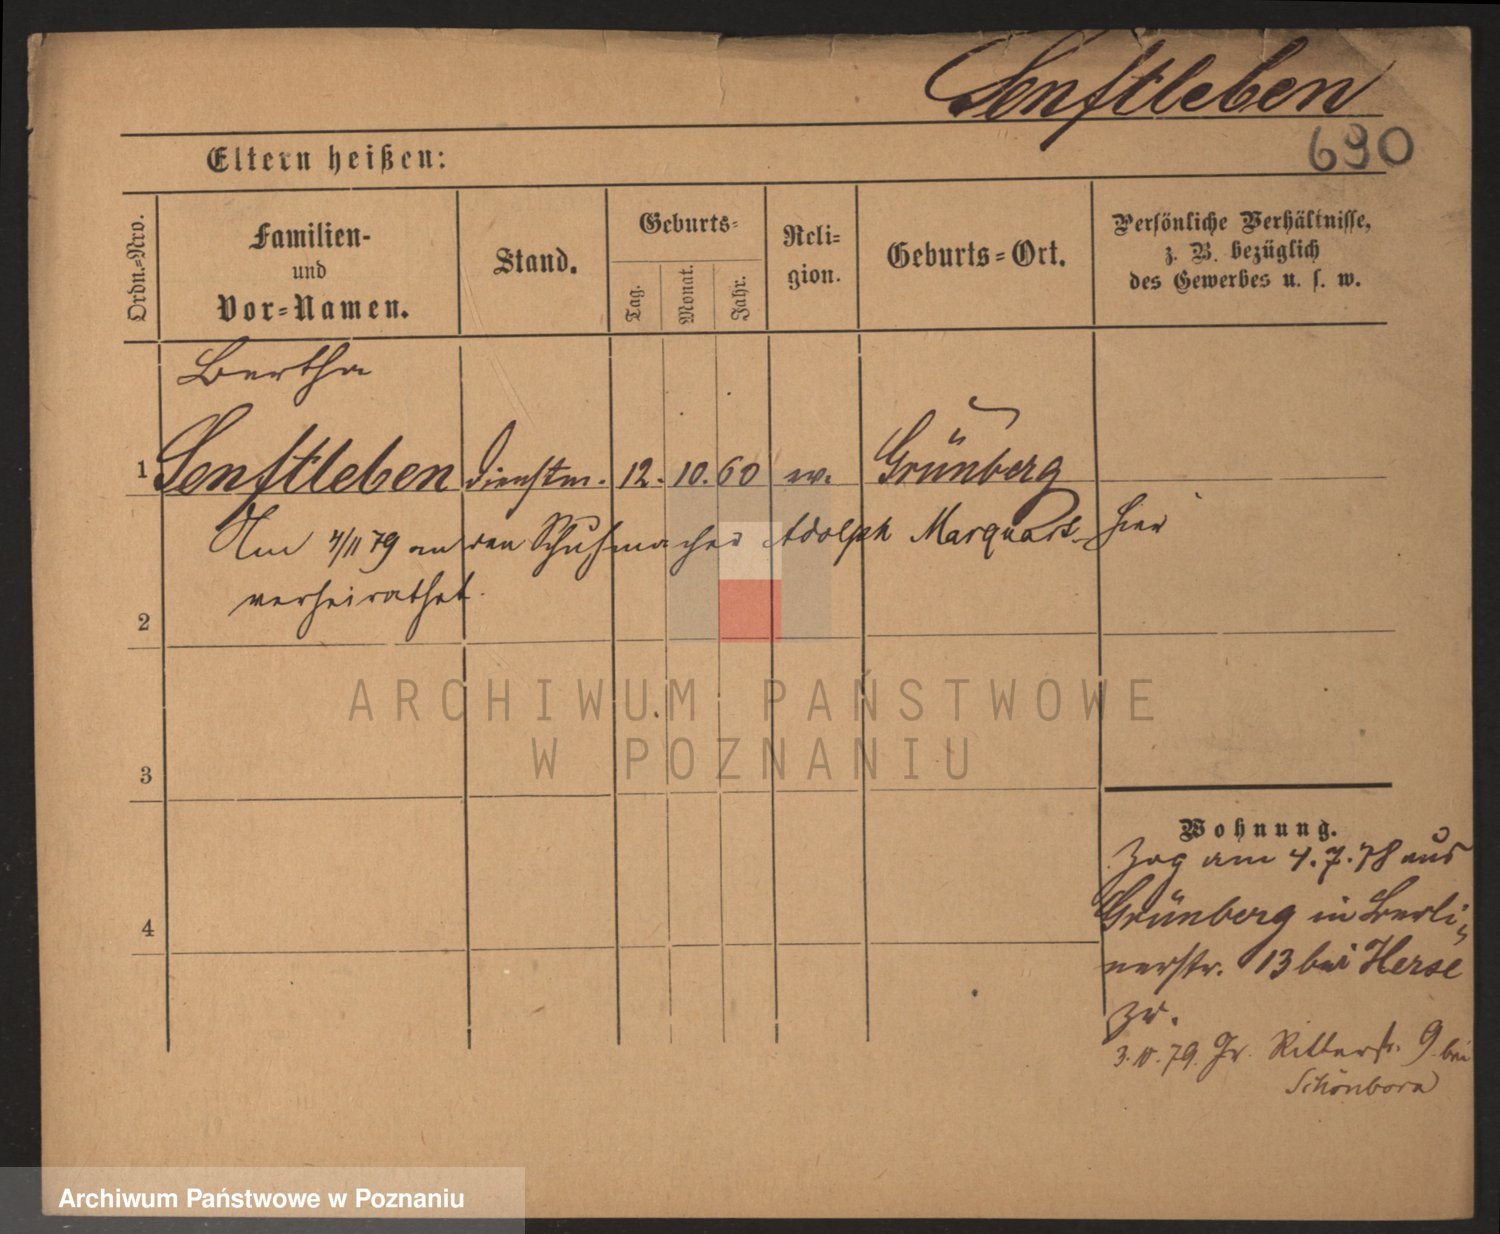 Senftleben
690
Eltern heißen:
Ordn.-Nro.
Familien-
und
Vor-Namen.
Stand.
Geburts-
Tag.
Monat.
Jahr.
Reli-
gion.
Geburts-Ort.
Persönliche Verhältnisse,
z. B. bezüglich
des Gewerbes u. s. w.
Bertha
1 Senftleben Dienstm. 12. 10. 60 ev. Grünberg
Am 4/11 79 an den Schuhmacher Adolph Marquardt hier
verheirathet.
2
ARCHIWUM PAŃSTWOWE
W POZNANIU
3
Wohnung.
Zog am 4.7.78 aus
4
Grünberg in Berli-
nerstr. 13 bei Herse
zu.
79. Gr. Ritterstr. 9 bei
Schönborn
Archiwum Państwowe w Poznaniu